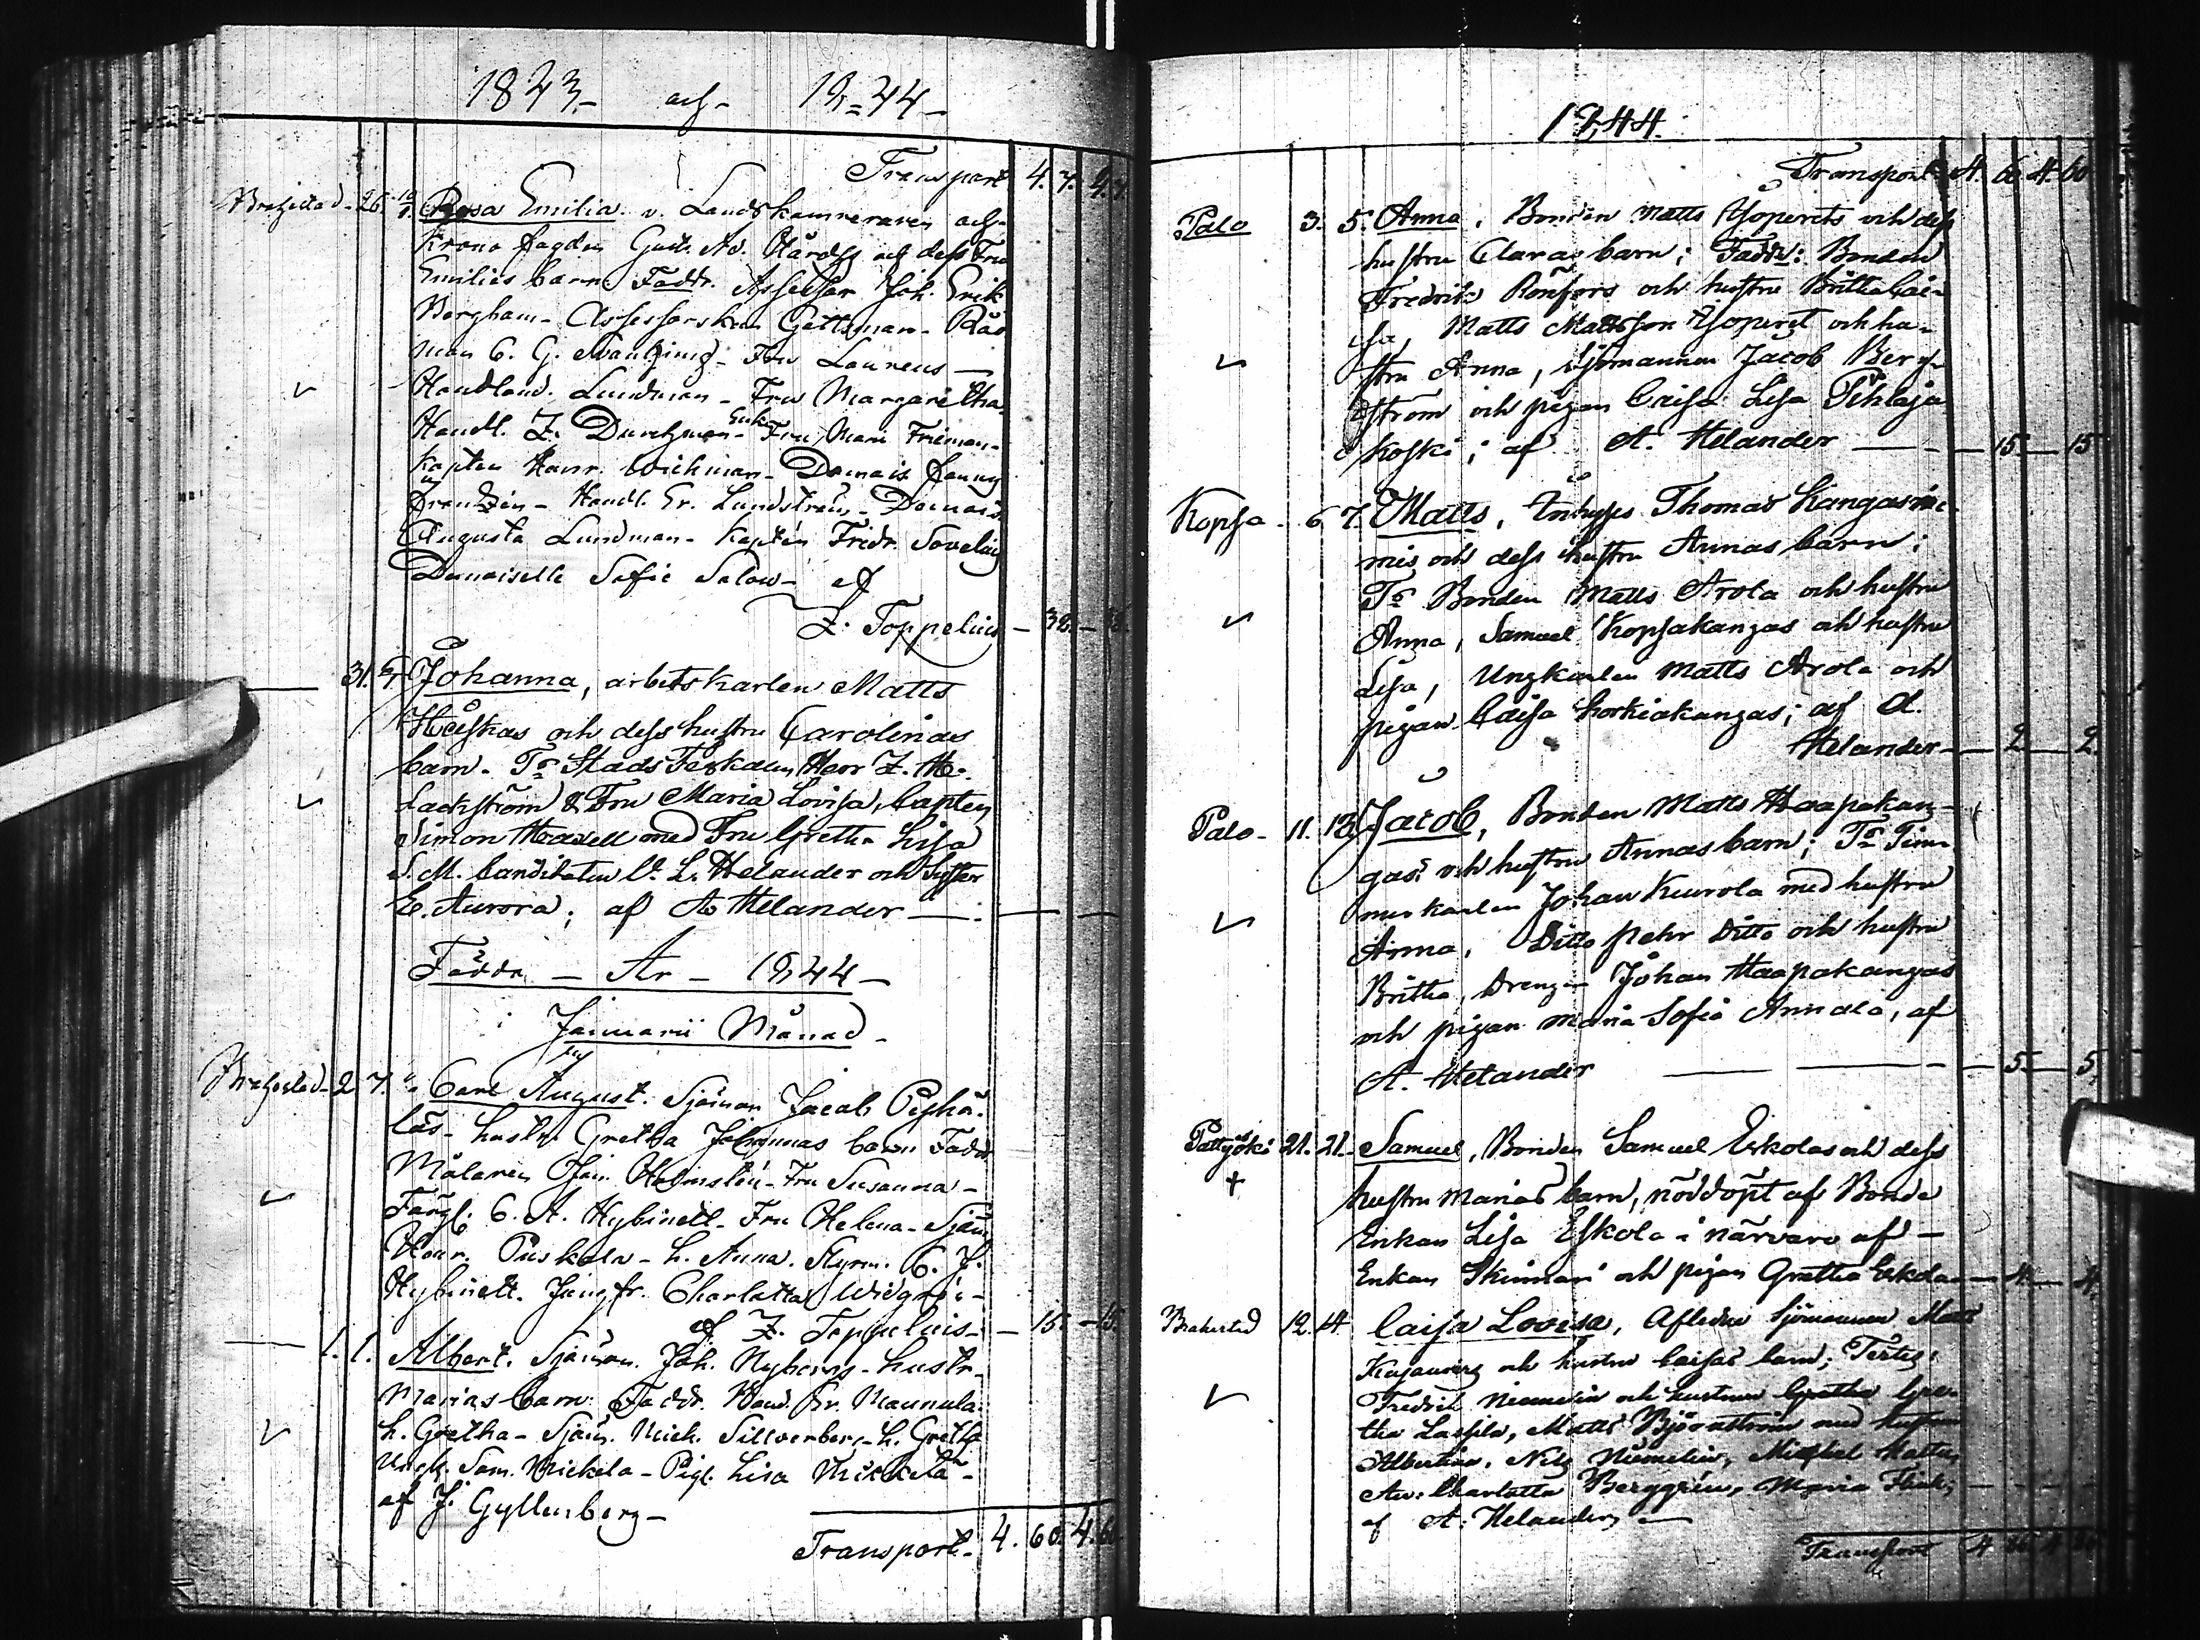 1843 och 1844
Transport 4. 7. 4. 7.
Brahestad 26. 10/1. Rosa Emilia. v. Landskammereraren och
Krono fogden Gust. Ad. Hårdhs och dess Fru
Emilies barn. Faddr. Assessor Joh. Erik
Bergbom - Assessorskan Gettzman - Råd
man C. G. - Fru Laurens -
Handland. Lundman - Fru Margaretha
Handl. Z. Durchman - Enke Fru Mari Frieman -
Kapten Henr. Wichman - Demois. Fanny
Frantzén - Handl. Er. Lundström - Demois.
Augusta Lundman - Kapten Fridr. Sovelius
Demoiselle Sofie Salow - af
Z. Toppelius - 38. - 38.
31. Johanna, arbetskarlen Matts
och dess hustru Carolinas
barn. Ts Stads Fiskalen Herr Z. M.
Lackström & Fru Maria Lovisa, Capten
Simon Hedvell med Fru Gretha Lisa
S. M. Canditaten C. L. Helander och Syster
E. Aurora; af A. Helander
Födde - År - 1844 -
i Januarii Månad -
Brahestad 2. 7. Carl August. Sjöman Jacob
- hustr. Gretha Johannas barn Faddr
Målaren Ofan Holmstén - Fru Susanna -
Färgf. C. A. Hybinett - Fru Helena - Sjöm
Henr. Puskala - h. Anna. Styrm. C. J.
Hybinett. Jungfr. Charlotta Widgrén -
af Z. Toppelius - 15. - 15.
1. 1. Albert. Sjöman. Joh. Nybergs - hustr.
Marias barn: Faddr. Hand. Er. Mannela
h. Gretha - Sjöm. Mich. Sillverberg - h. Greth
Ungk. Sam. Mickela - Pig. Lisa Mickela -
af J. Gyllenberg -
Transport. 4. 60. 4. 60
1844.
Transport 4. 60 4. 60
Palo 3. 5. Anna, Bonden Matts Yoperets och dess
hustru Claras barn; Faddr: Bonden
Fredrik Rönfors och hustru Britha Cai-
sa, Matts Mattsson Yoperet och hu-
stru Anna, Sjömannen Jacob Berg-
ström och pigan Caisa Lisa Pihlaja
koski; af A. Helander - 15. - 15
Kopsa - 6 7. Matts, Inhyses Thomas Kangasnie-
mis och dess hustru Annas barn;
Ts Bonden Matts Arola och hustru
Anna, Samuel Kopsakangas och hustru
Lisa, Ungkarlen Matts Arola och
pigan Caisa Korkiakangas; af A.
Helander - 2 - 2.
Palo - 11. 13. Jacob, Bonden Matts Haapakan-
gas och hustru Annas barn; Ts Tim-
merkarlen Johan Keurola med hustru
Anna, Ditto Pehr Ditto och hustru
Britha, Drengen Johan Haapakangas
och pigan Maria Sofia Annala, af
A. Helander - 5. - 5.
Pattjoki 21. 21. Samuel, Bonden Samuel Eskolas och dess
hustru Marias barn, nöddöpt af Bonde
Enkan Lisa Eskola i närvaro af -
Enkan Skinnari och pigan Gretha Eskola - 4. - 4.
Brahestad 12. 14. Caisa Lovisa, Aflidne Sjömannen Matts
Kajanders och hustru Caisas barn; Testes:
Fredrik Niemelin och hustrun Gretha Gre-
tha Laspla, Matts Björnström med hustrun
Albertina, Nils Niemelin, Michel Mattus
An: Charlotta Berggrén, Maria
af A. Helander,
Transport 4